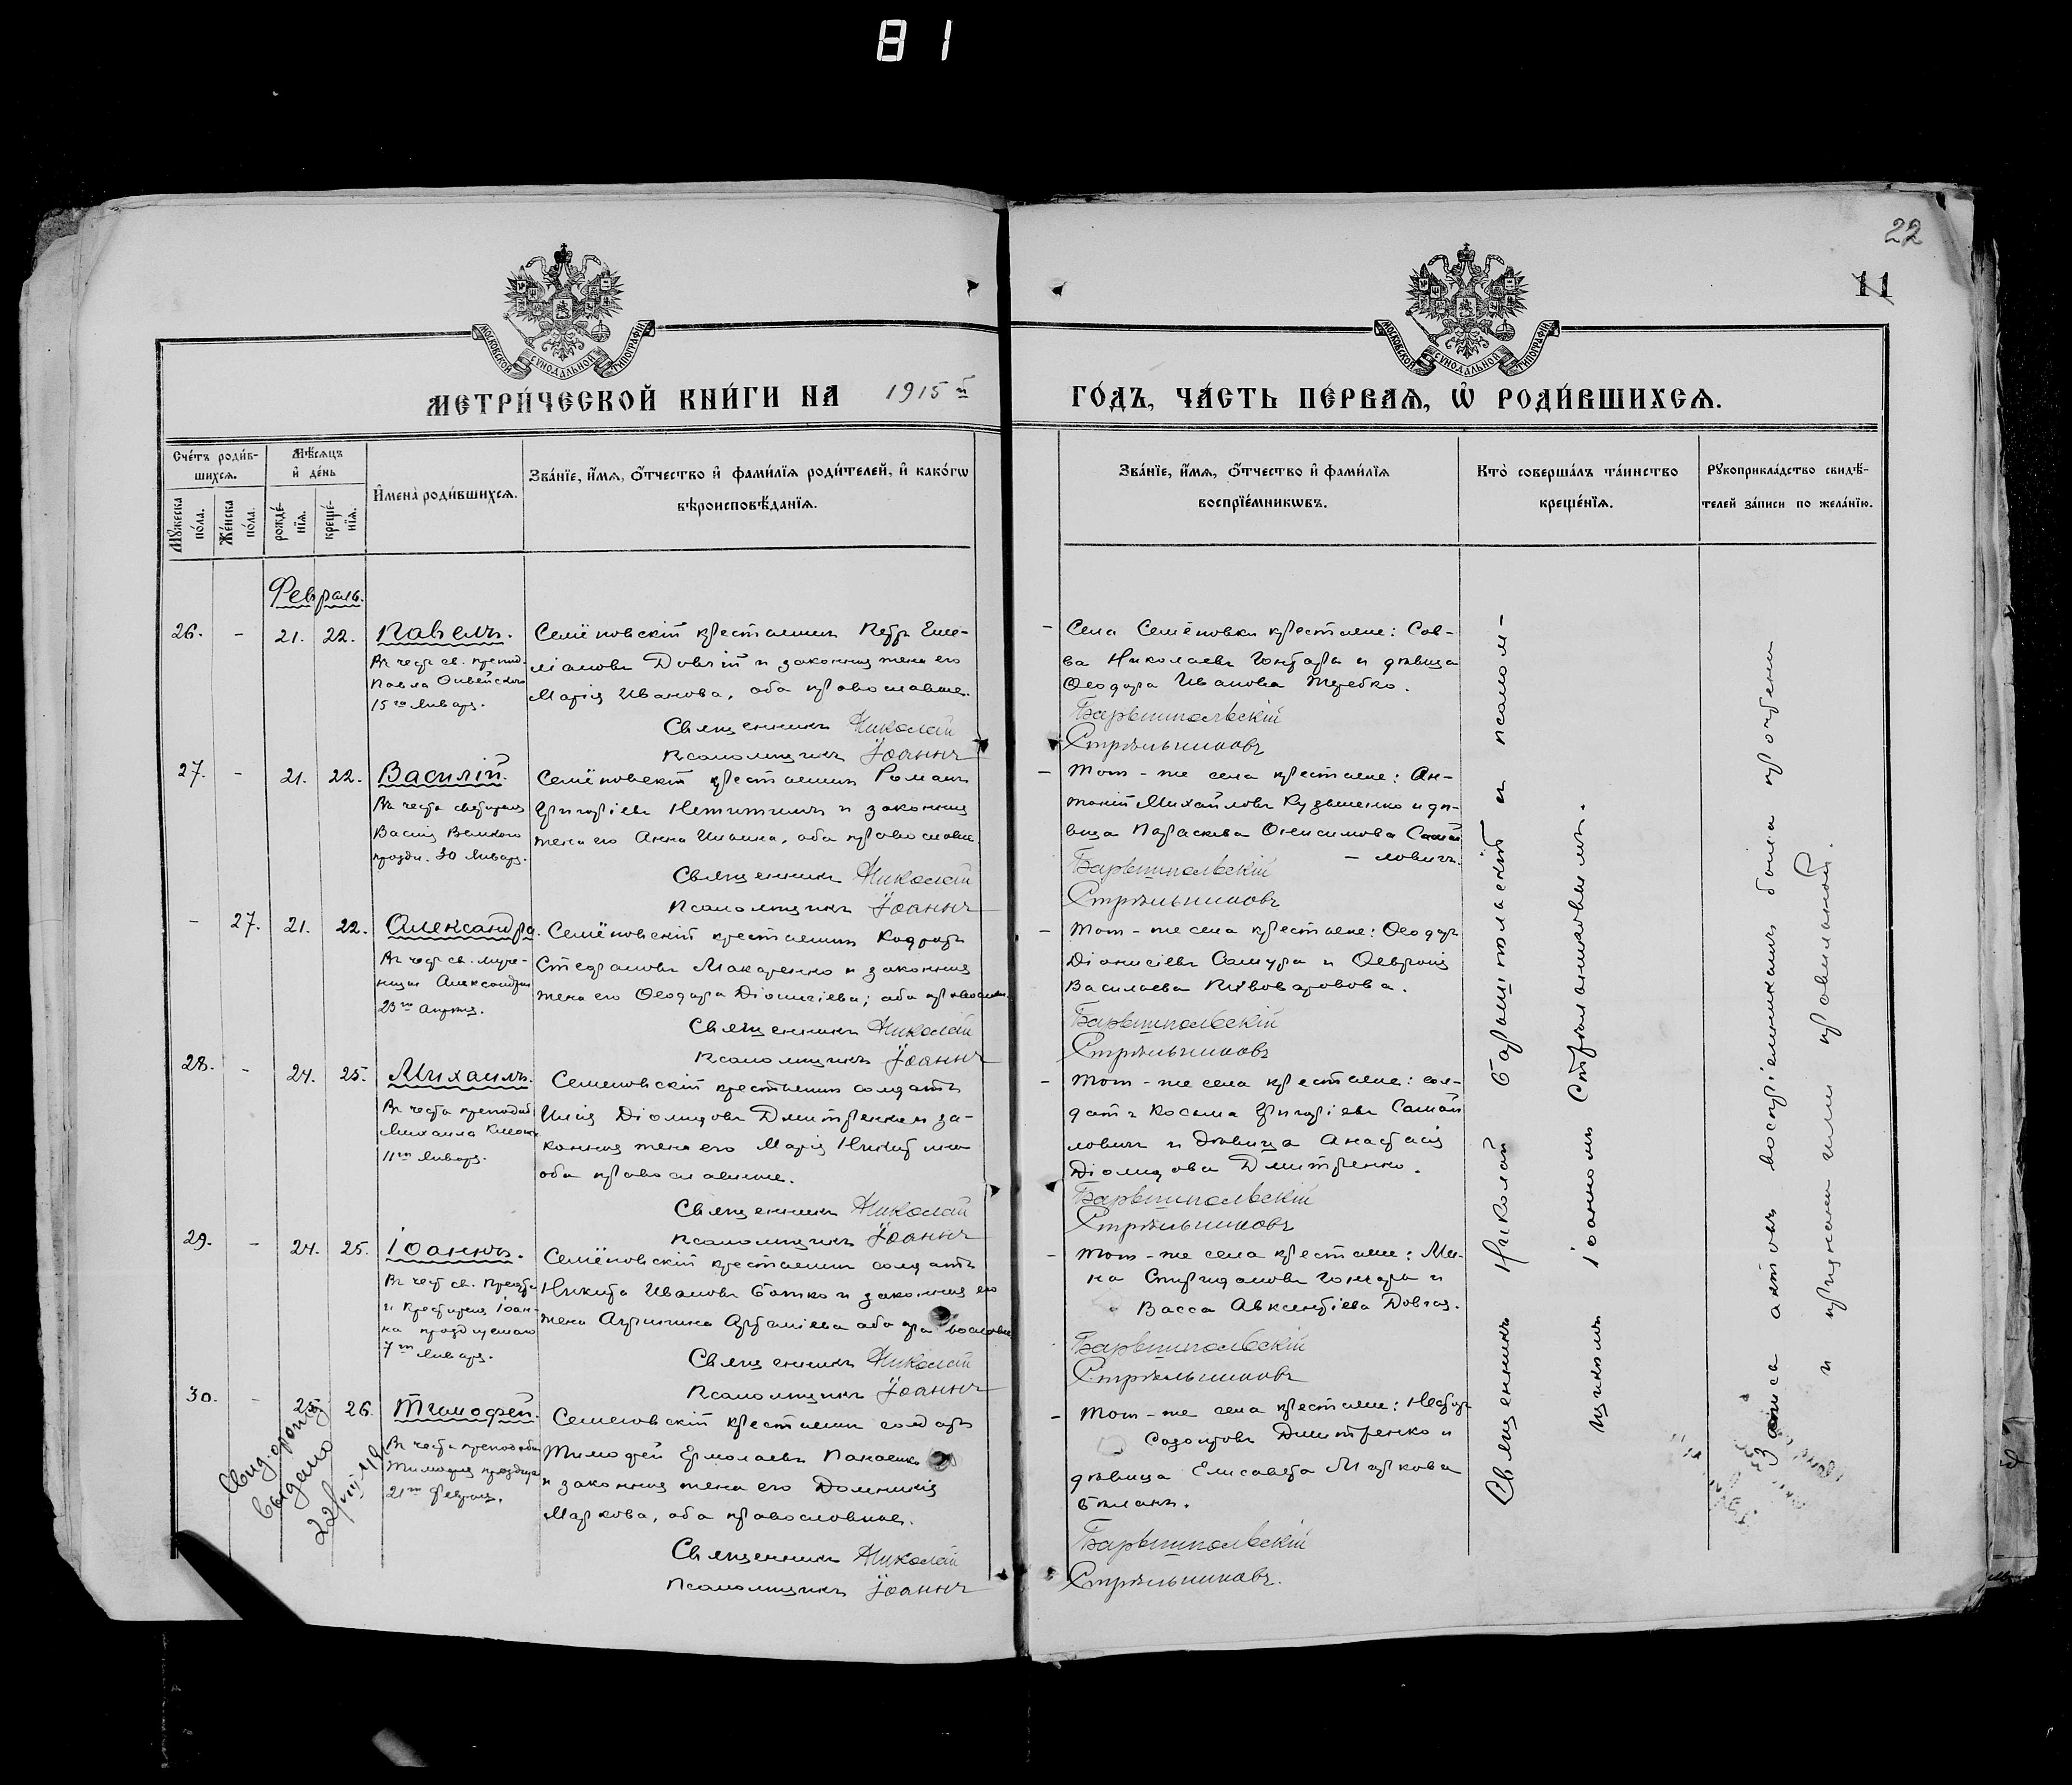 81
22
11
МОСКОВСКОЙ СѴНОДАЛЬНОЙ ТИПОГРАФІИ
МОСКОВСКОЙ СѴНОДАЛЬНОЙ ТИПОГРАФІИ
МЕТРИ́ЧЕСКОЙ КНИ́ГИ НА 1915 й
ГО́ДЪ, ЧА́СТЬ ПЕ́РВАѦ, Ѡ҆ РОДИ́ВШИХСѦ.
Сче́тъ роди́в-
шихся.
Мѣ́сяцъ
и҆ де́нь
Мꙋ́жеска
по́ла.
Же́нска
по́ла.
рожде́-
нїѧ.
креще́-
нїѧ.
И҆мена̀ роди́вшихсѧ.
Зва́нїе, и҆́мѧ, ѻ҆́тчество и҆ фами́лїѧ роди́телей, и҆ како́гѡ
вѣроисповѣ́данїѧ.
Зва́нїе, и҆́мѧ, ѻ҆́тчество и҆ фами́лїѧ
воспрїе́мникѡвъ.
Кто̀ соверша́лъ та́инство
креще́нїѧ.
Рꙋкоприкла́дство свидѣ́-
телей за́писи по жела́нїю.
Февраль.
26. - 21. 22. Павелъ.
Въ честь св. препод.
Павла Ѳивейскаго
15го Января.
Семёновскій крестьянинъ Петръ Еме-
ліановъ Довгій и законная жена его
Марія Иванова, оба православные.
Священникъ Николай
Псаломщикъ Іоаннъ
- Села Семёновки крестьяне: Сав-
ва Николаевъ Гонтарь и дѣвица
Ѳеодора Иванова Жребко.
Барышпольскій
Стрѣльниковъ
27. - 21. 22. Василій.
Въ честь святителя
Василія Великаго
праздн. 30 Января.
Семёновскій крестьянинъ Романъ
Григоріевъ и законная
жена его Анна Ильина, оба православные.
Священникъ Николай
Псаломщикъ Іоаннъ
- Той-же села крестьяне: Ан-
тоній Михайловъ Кузьменко и дѣ-
вица Параскева Онисимова Самой
- ловичъ.
Барышпольскій
Стрѣльниковъ
- 27. 21. 22. Александра.
Въ честь св. муче-
ницы Александры
23го Апрѣля.
Семёновскій крестьянинъ Кодратъ
Стефановъ Макаренко и законная
жена его Ѳеодора Діонисіева; оба православные.
Священникъ Николай
Псаломщикъ Іоаннъ
- Той-же села крестьяне: Ѳеодоръ
Діонисіевъ Самура и Ѳевронія
Василіева Пивоварова.
Барышпольскій
Стрѣльниковъ
28. - 24. 25. Михаилъ.
Въ честь преподоб.
Михаила
11го Января.
Семеновскій крестьянинъ солдатъ
Илія Діомидовъ Дмитренко и за-
конная жена его Марія Никитина
оба православные.
Священникъ Николай
Псаломщикъ Іоаннъ
- Той-же села крестьяне: сол-
датъ Косьма Григоріевъ Самой
ловичъ и дѣвица Анастасія
Діомидова Дмитренко.
Барышпольскій
Стрѣльниковъ
29. - 24. 25. Іоаннъ.
Въ честь св. Предтечи
и Крестителя Іоан-
на празднуемаго
7го Января.
Семёновскій крестьянинъ солдатъ
Никита Ивановъ Ботко и законная его
жена Агрипина оба православные
Священникъ Николай
Псаломщикъ Іоаннъ
- Той-же села крестьяне: Ми-
на Спиридоновъ Гонтарь и
Васса Авксентіева Довгая.
Барышпольскій
Стрѣльниковъ
30. - 25. 26. Тимофей.
Въ честь преподобн.
Тимофея празднуем.
21го Февраля.
Семеновскій крестьянинъ солдатъ
Тимофей Ермолаевъ Панасенко
и законная жена его Домникія
Маркова, оба православные.
Священникъ Николай
Псаломщикъ Іоаннъ
- Той-же села крестьяне: Несторъ
Созонтовъ Дмитренко и
дѣвица Елисавета Маркова
Барышпольскій
Стрѣльниковъ.
выдано
Священникъ Николай Барышпольскій и псалом-
щикомъ Іоанномъ Стрѣльниковымъ.
Запись актовъ воспріемникамъ была прочтена
и признана ими правильной.